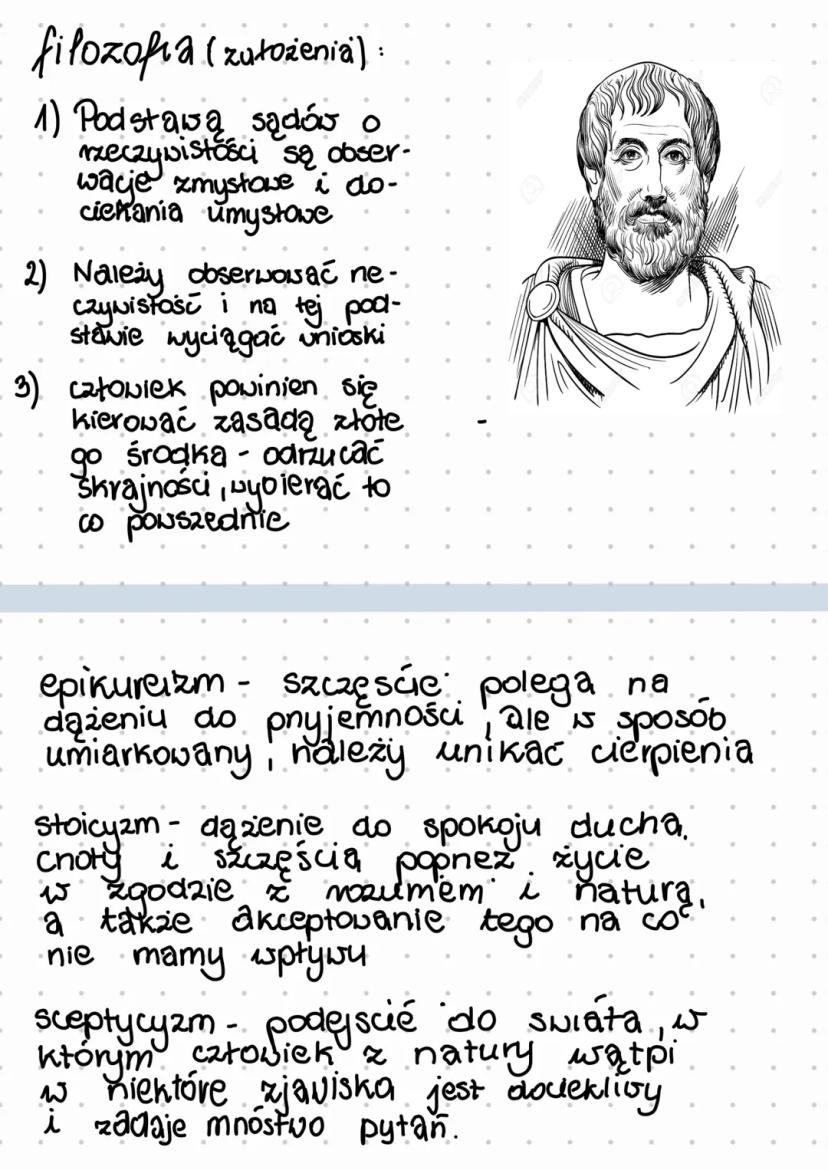 filozofia (założenia) :
1) Podstawą sądów o
rzeczywistości są obser-
wacje zmysłowe i do-
ciekania umysłowe
2) Należy obserwować rze-
czywistość i na tej pod-
stawie wyciągać wnioski
3) człowiek powinien się
kierować zasadą złote
go środka - odrzucać
skrajności, wybierać to
co powszednie
epikureizm - szczęście polega na
dążeniu do przyjemności, ale w sposób
umiarkowany, należy unikać cierpienia
stoicyzm - dążenie do spokoju ducha,
cnoty i szczęścia poprzez życie
w zgodzie z rozumem i naturą,
a także akceptowanie tego na co
nie mamy wpływu
sceptycyzm - podejście do świata, w
którym człowiek z natury wątpi
w niektóre zjawiska jest dociekliwy
i zadaje mnóstwo pytań.